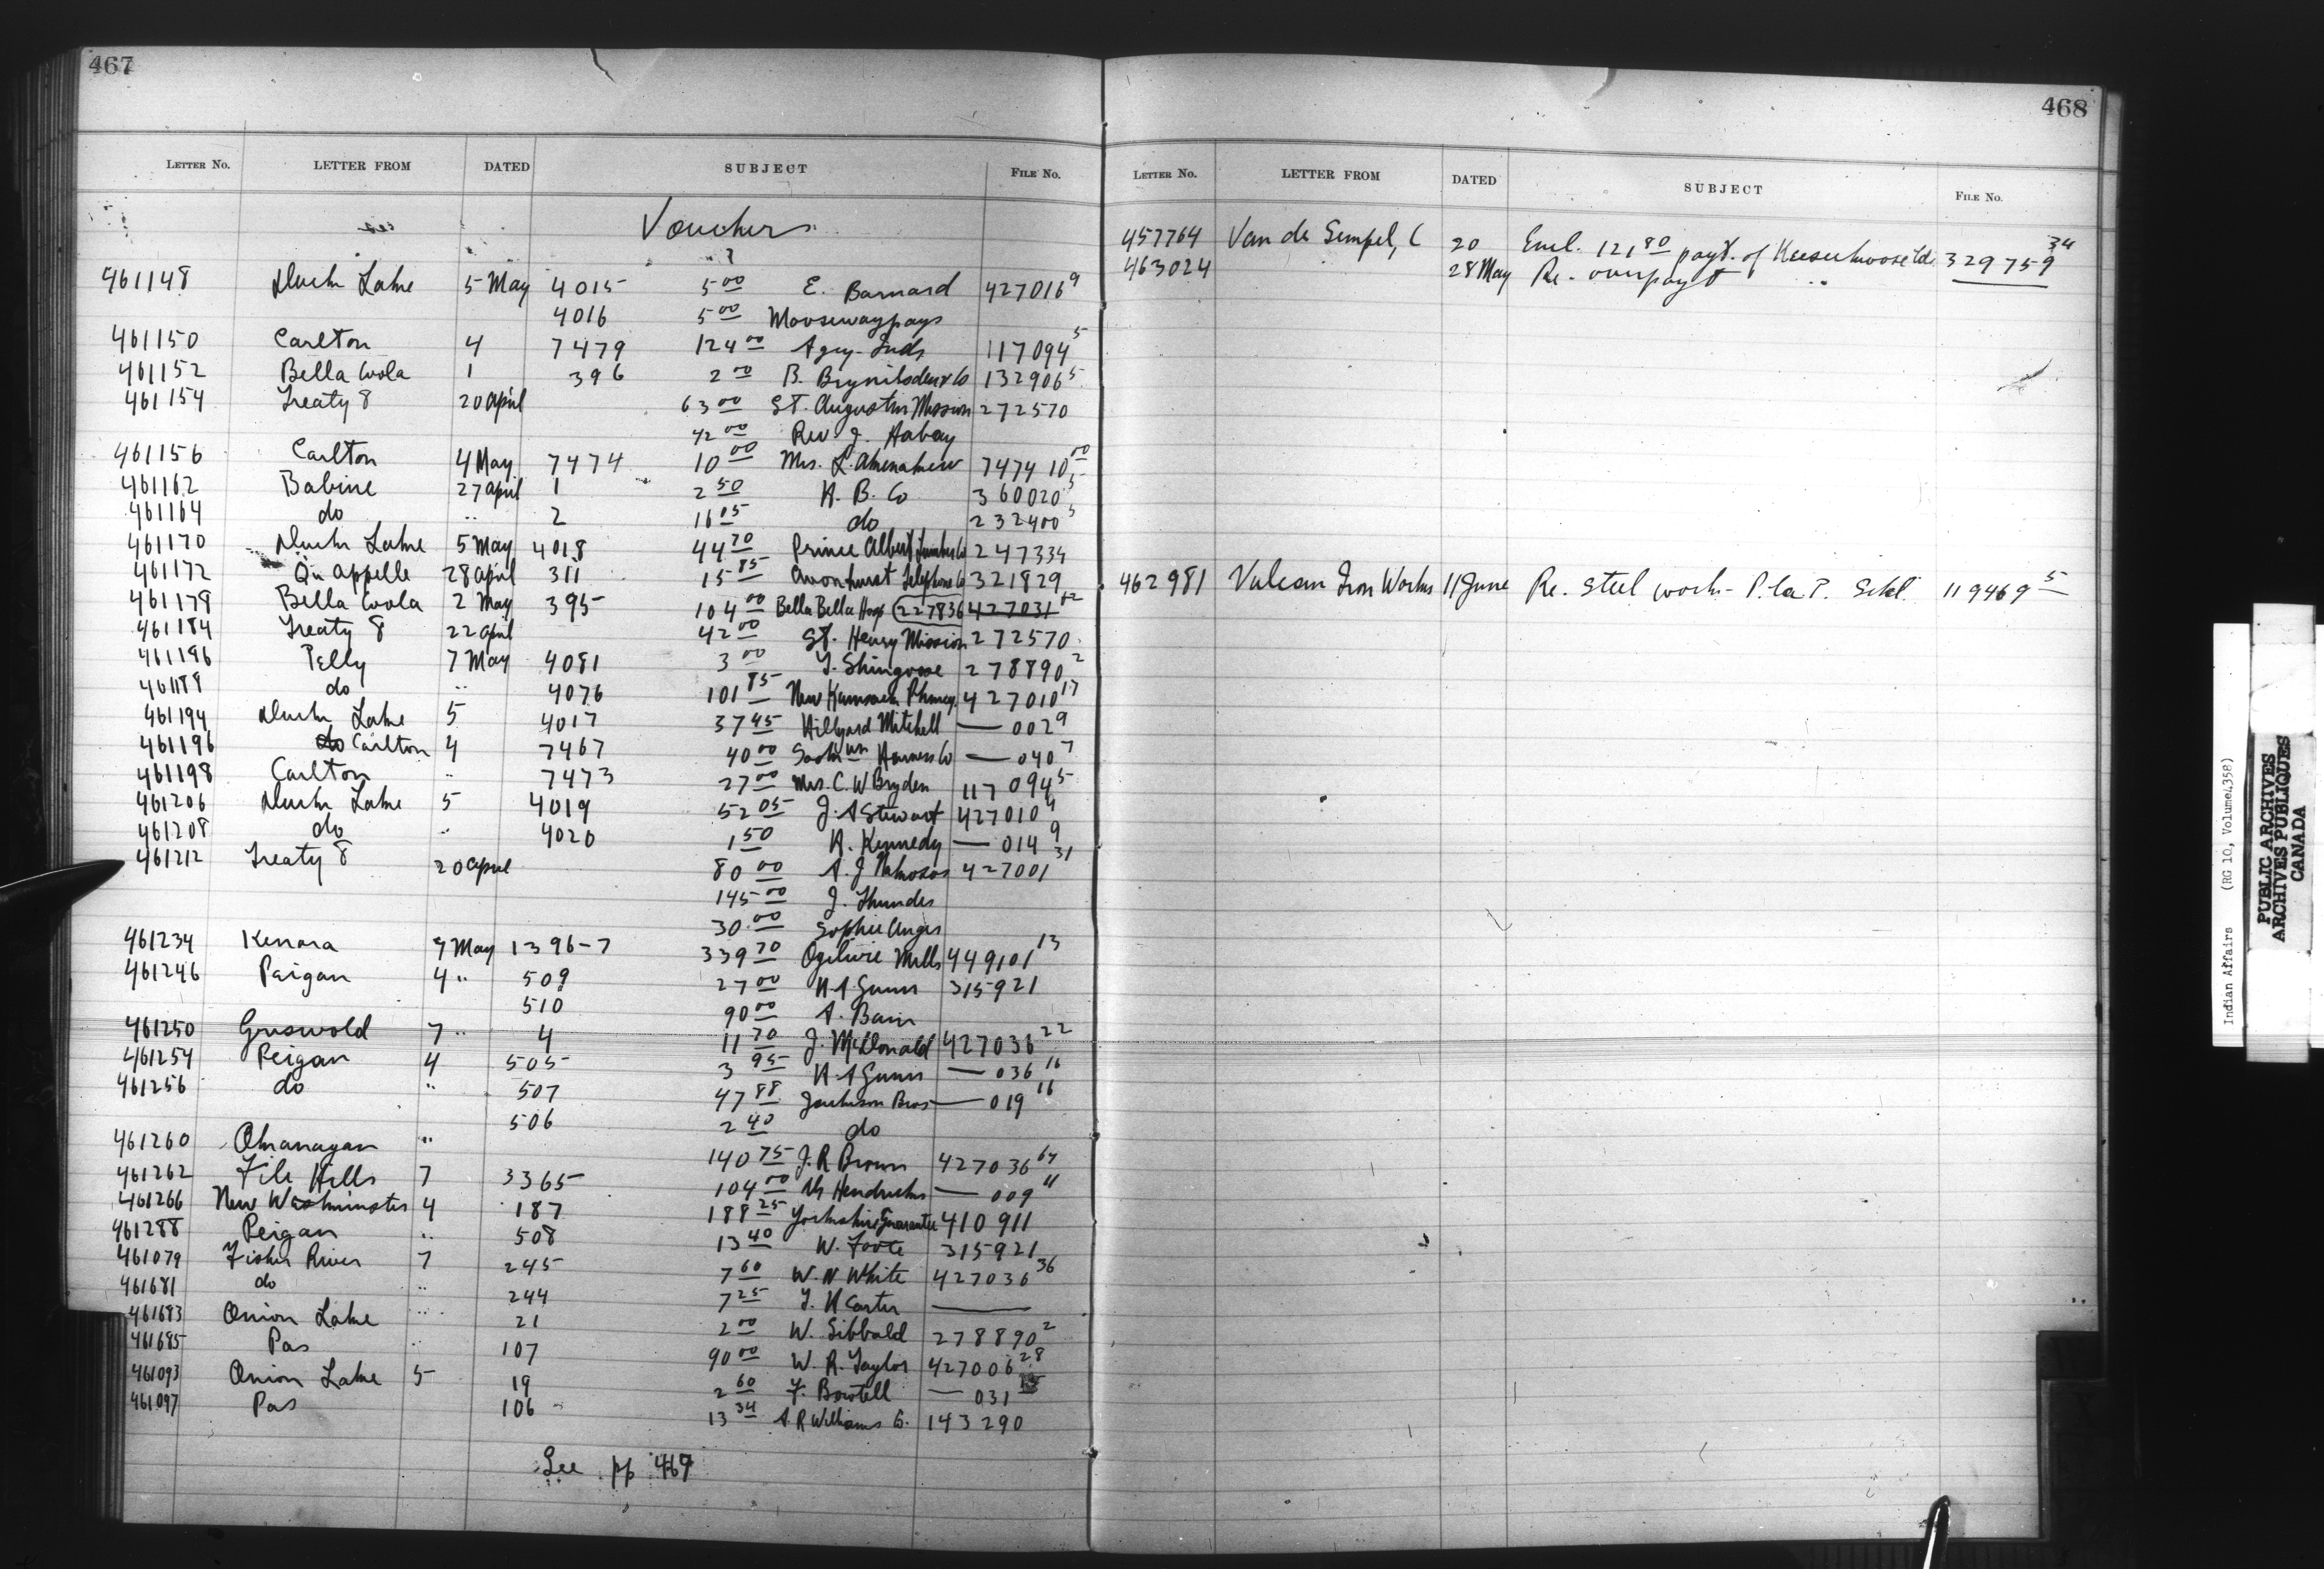 467
LETTER No. LETTER FROM DATED SUBJECT FILE No.
Vouchers
461148 Duck Lake 5 May 4015 5 00 E. Barnard 427016 9
4016 5 00 Moosewaypays
461150 Carlton 4 7479 124 00 Agcy. Inds 117094 5
461152 Bella Coola 1 396 2 00 B. Brynildsen & Co 132906 5
461154 Treaty 8 20 April 63 00 St. Augustin Mission 272570
42 00 Rev J.
461156 Carlton 4 May 7474 10 00 Mrs. L. 7474 10 00
461162 Babine 27 April 1 2 50 H. B. Co 360020 5
461164 do " 2 16 05 do 232400 5
461170 Duck Lake 5 May 4018 44 70 Prince Albert Lumber Co 247334
461172 Qu'appelle 28 April 311 15 85 Avonhurst Telephone Co 321829
461178 Bella Coola 2 May 395 104 00 Bella Bella Hosp (227836 427031 12
461184 Treaty 8 22 April 42 00 St. Henry Mission 272570
461196 Pelly 7 May 4081 3 00 T. Shingoose 278890 2
461188 do " 4076 101 85 New Kamsack Phmcy. 427010 17
461194 Duck Lake 5 4017 37 45 Hillyard Mitchell — 002 9
461196 do Carlton 4 7467 40 00 Sask wn Harness Co — 040 7
461198 Carlton " 7473 27 00 Mrs. C. W Bryden 117094 5
461206 Duck Lake 5 4019 52 05 J. A Stewart 427010 9
461208 do " 4020 1 50 R. Kennedy — 014 9
461212 Treaty 8 20 April 80 00 A. J 427001 31
145 00 J. Thunder
30 00 Sophie
461234 Kenora 7 May 1396-7 339 70 Ogilvie Mills 449101 13
461246 Peigan 4 " 509 27 00 H A Gunn 315921
510 90 00 A. Bain
461250 Griswold 7 " 4 11 70 J. McDonald 427036 22
461254 Peigan 4 505 3 95 H. A Gunn — 036 16
461256 do " 507 47 88 Jackson Bros — 019 16
506 2 40 do
461260 Okanagan " 140 75 J. R Brown 427036 64
461262 File Hills 7 3365 104 00 Hendricks — 009 11
461266 New Westminster 4 187 188 25 Yorkshire Guarantee 410911
461288 Peigan " 508 13 40 W. Foote 315921
461079 Fisher River 7 245 7 60 W. N White 427036 36
461681 do " 244 7 25 T. H Carter —
461683 Onion Lake " 21 2 00 W. Sibbald 278890 2
461685 Pas " 107 90 00 W. R. Taylor 427006 28
461093 Onion Lake 5 19 2 60 F. Bowtell — 031
461097 Pas 106 13 34 A. R Williams Co. 143290
See pp 469
468
LETTER No. LETTER FROM DATED SUBJECT FILE No.
457764 Van de Gempel, C 20 Encl. 121 80 payt. of 329759 34
463024 28 May Re. overpayt "
462981 Vulcan Iron Works 11 June Re. steel work - P. la P. Schl. 119469 5
Indian Affairs (RG 10, Volume 4358)
PUBLIC ARCHIVES
ARCHIVES PUBLIQUES
CANADA